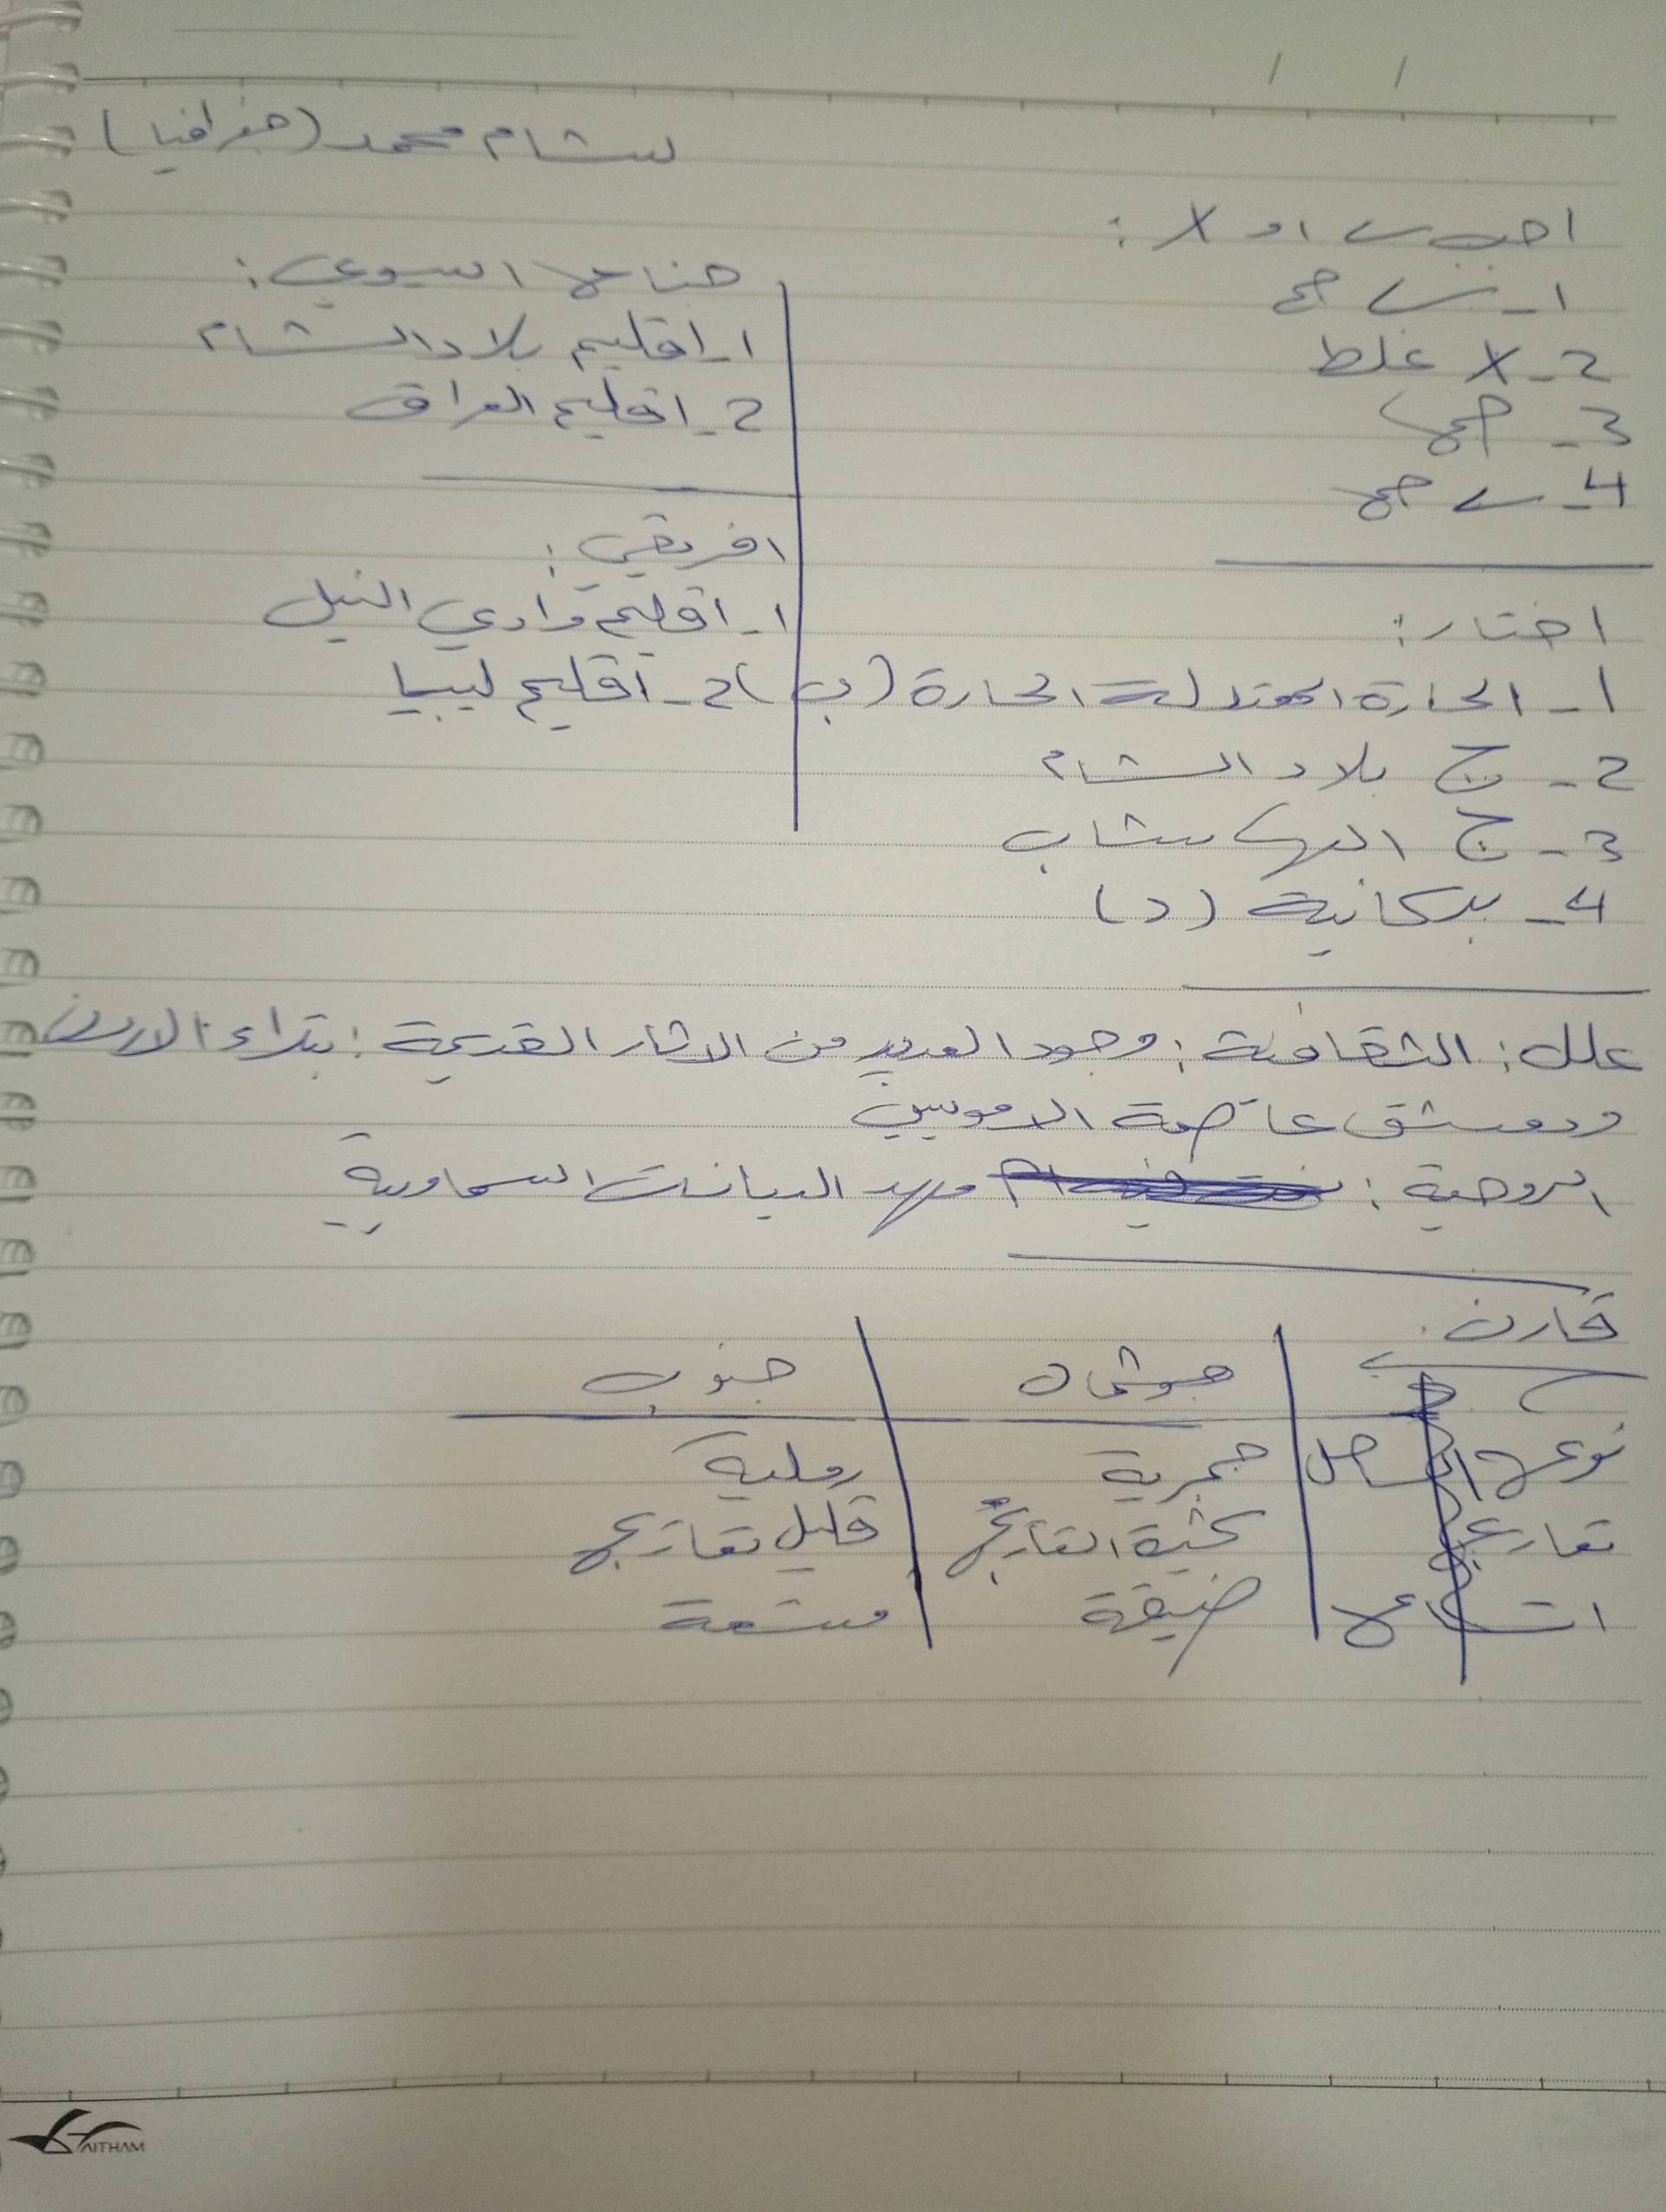 محمد (جغرافيا)
اجب ✓ او X :
1- ✓ صح
2- X غلط
3- صح
4- ✓ صح
جناح اسيوي :
1- اقليم بلاد الشام
2- اقليم العراق
افريقي :
1- اقليم وادي النيل
2- اقليم ليبيا
اختار :
1- الحارة المعتدلة الحارة (ب)
2- ج بلاد الشام
3- ج
4- بركانية (د)
علل : الثقافية : وجود العديد من الاثار القديمة : بتراء الاردن
ودمشق عاصمة الامويين
الروحية : مهد الديانات السماوية
قارن :
جنوب
نوع الساحل حجرية رملية
تعاريج كثيرة التعاريج قليل تعاريج
اتساع ضيقة متسعة
HAITHAM